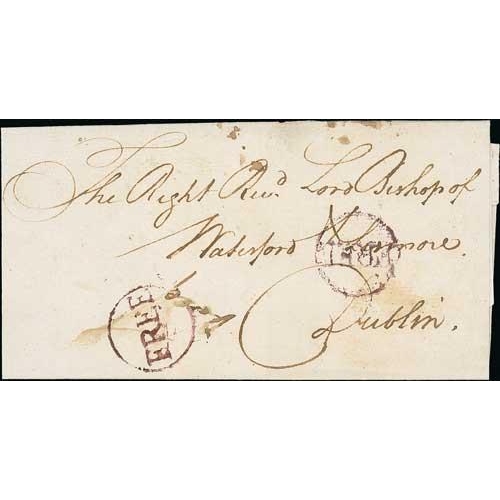 The Right Revd. Lord Bishop of
Waterford & Lismore.
Dublin.
FREE